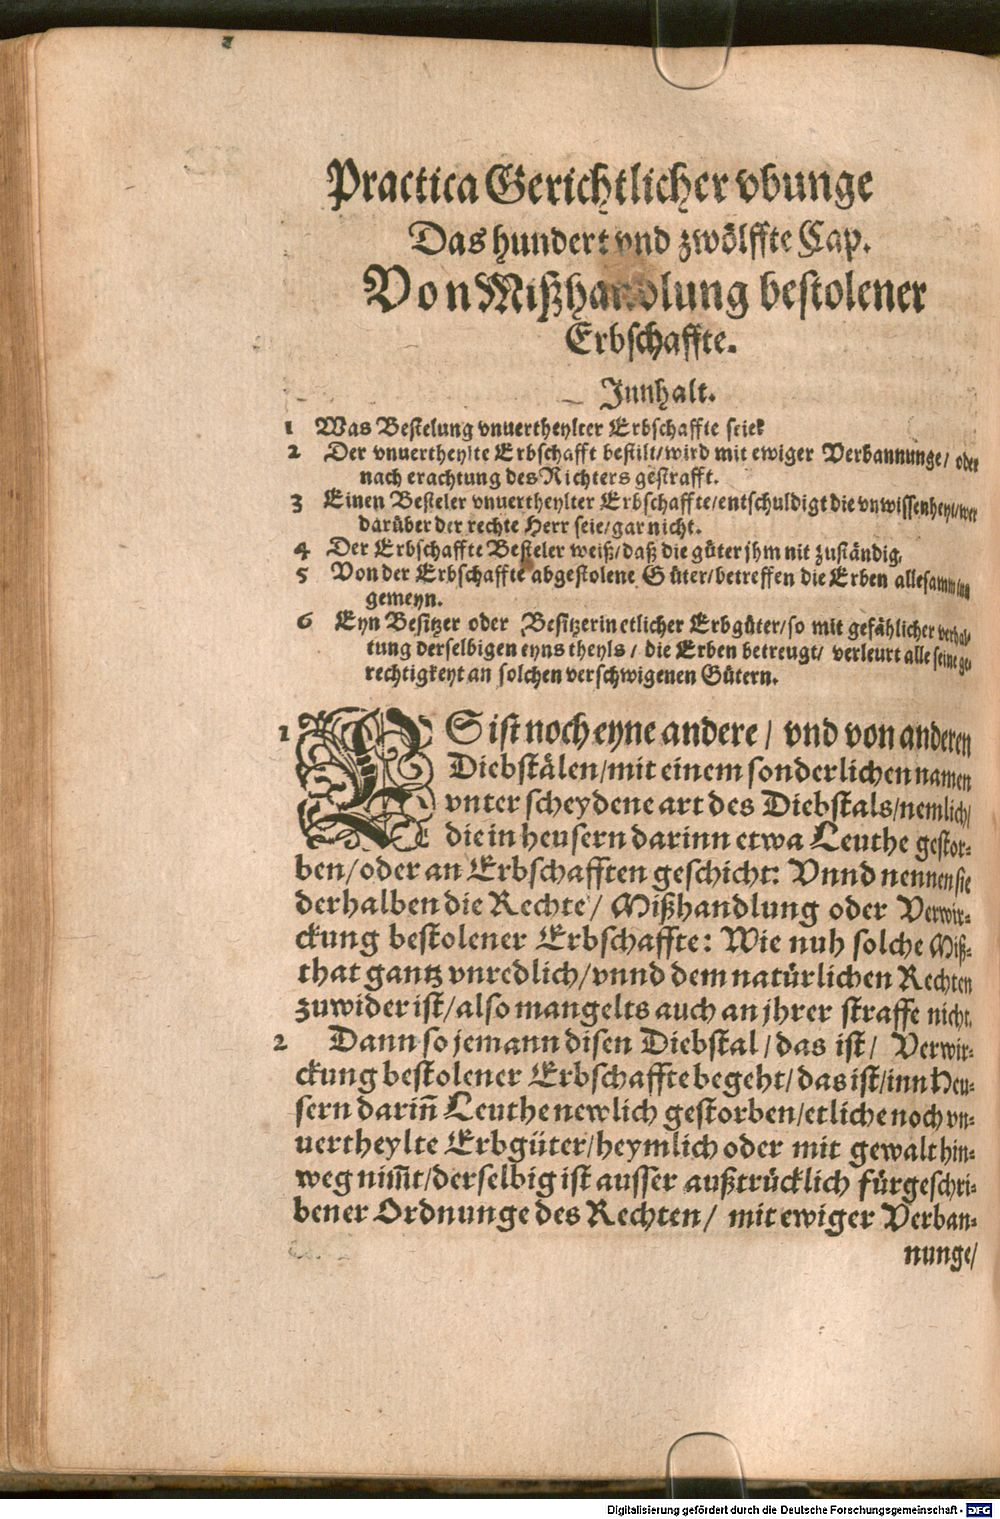 Practica Gerichtlicher vbunge
Das hundert vnd zwölffte Cap.
Von Mißhandlung bestolener
Erbschaffte.
Innhalt.
1 Was Bestelung vnuertheylter Erbschaffte seie?
2 Der vnuertheylte Erbschafft bestilt/wird mit ewiger Verbannunge/ oder
nach erachtung des Richters gestrafft.
3 Einen Besteler vnuertheylter Erbschaffte/entschuldigt die vnwissenheyt/wer
darüber der rechte Herr seie/gar nicht.
4 Der Erbschaffte Besteler weiß/daß die güter jhm nit zuständig.
5 Von der Erbschaffte abgestolene Güter/betreffen die Erben allesamm inn
gemeyn.
6 Eyn Besitzer oder Besitzerin etlicher Erbgüter/so mit gefählicher verhal-
tung derselbigen eyns theyls/ die Erben betreugt/ verleurt alle seine ge-
rechtigkeyt an solchen verschwigenen Gütern.
1 ES ist noch eyne andere/ vnd von anderen
Diebstälen/mit einem sonderlichen namen
vnterscheydene art des Diebstals/nemlich/
die in heusern darinn etwa Leuthe gestor-
ben/oder an Erbschafften geschicht: Vnnd nennen sie
derhalben die Rechte/ Mißhandlung oder Verwir-
ckung bestolener Erbschaffte: Wie nuh solche Miß-
that gantz vnredlich/vnnd dem natürlichen Rechten
zuwider ist/also mangelts auch an jhrer straffe nicht.
2 Dann so jemann disen Diebstal/das ist/ Verwir-
ckung bestolener Erbschaffte begeht/das ist/inn Heu-
sern dariñ Leuthe newlich gestorben/etliche noch vn-
uertheylte Erbgüter/heymlich oder mit gewalt hin-
weg nim̃t/derselbig ist ausser außtrücklich fürgeschri-
bener Ordnunge des Rechten/ mit ewiger Verban-
nunge/
Digitalisierung gefördert durch die Deutsche Forschungsgemeinschaft - DFG